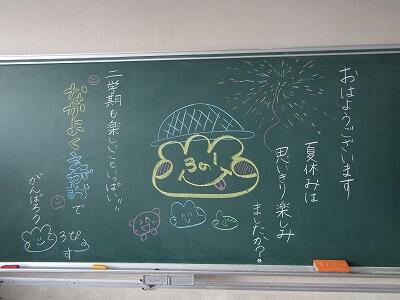 おはようございます
夏休みは
思いきり楽しみ
ましたか？
3の1
二学期も楽しいこといっぱい!!
なかよくえがおで
がんばろう